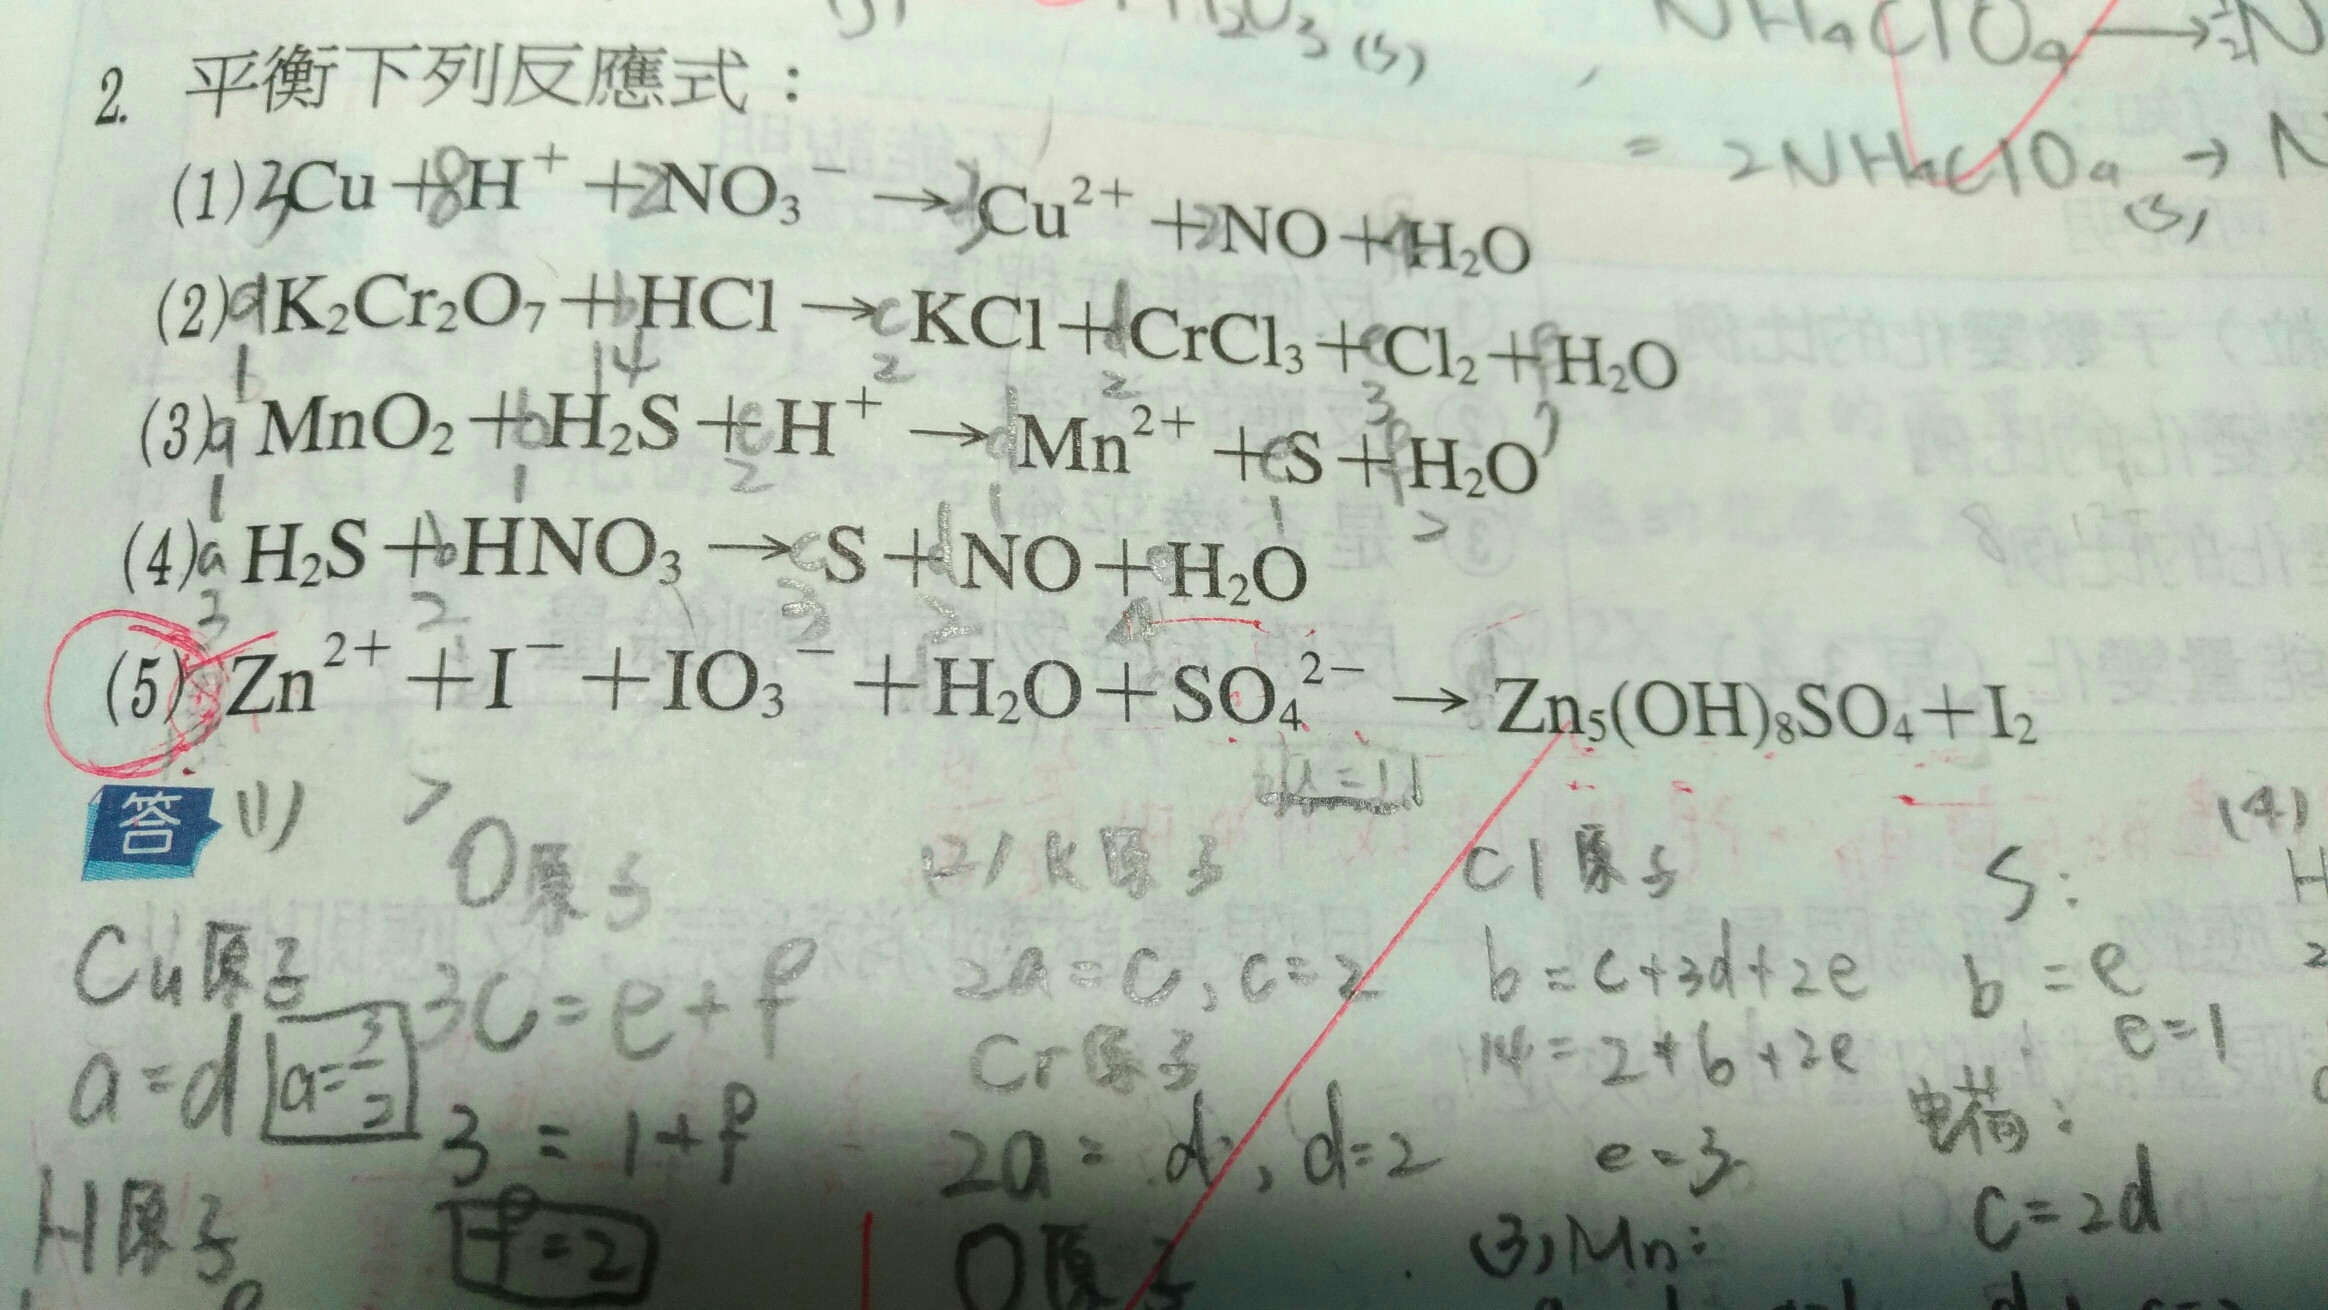 NH₄ClO₄ →
2. 平衡下列反應式：
= 2NH₄ClO₄(s) → N
(1) 3Cu + 8H⁺ + 2NO₃⁻ → 3Cu²⁺ + 2NO + 4H₂O
(2) a K₂Cr₂O₇ + b HCl → c KCl + d CrCl₃ + e Cl₂ + f H₂O
1 14 2 2 3 7
(3) a MnO₂ + b H₂S + c H⁺ → d Mn²⁺ + e S + f H₂O
1 1 2 1 1 2
(4) a H₂S + b HNO₃ → c S + d NO + e H₂O
3 2 3 2 4
(5) Zn²⁺ + I⁻ + IO₃⁻ + H₂O + SO₄²⁻ → Zn₅(OH)₈SO₄ + I₂
答 (1)
Cu原子
a = d a=3/2
H原子
O原子
3c = e + f
3 = 1 + f
f = 2
(2) K原子
2a = c, c = 2
Cr原子
2a = d, d = 2
O原子
Cl原子
b = c + 3d + 2e
14 = 2 + 6 + 2e
e = 3
(3) Mn:
S:
b = e
e = 1
电荷:
c = 2d
(4)
H